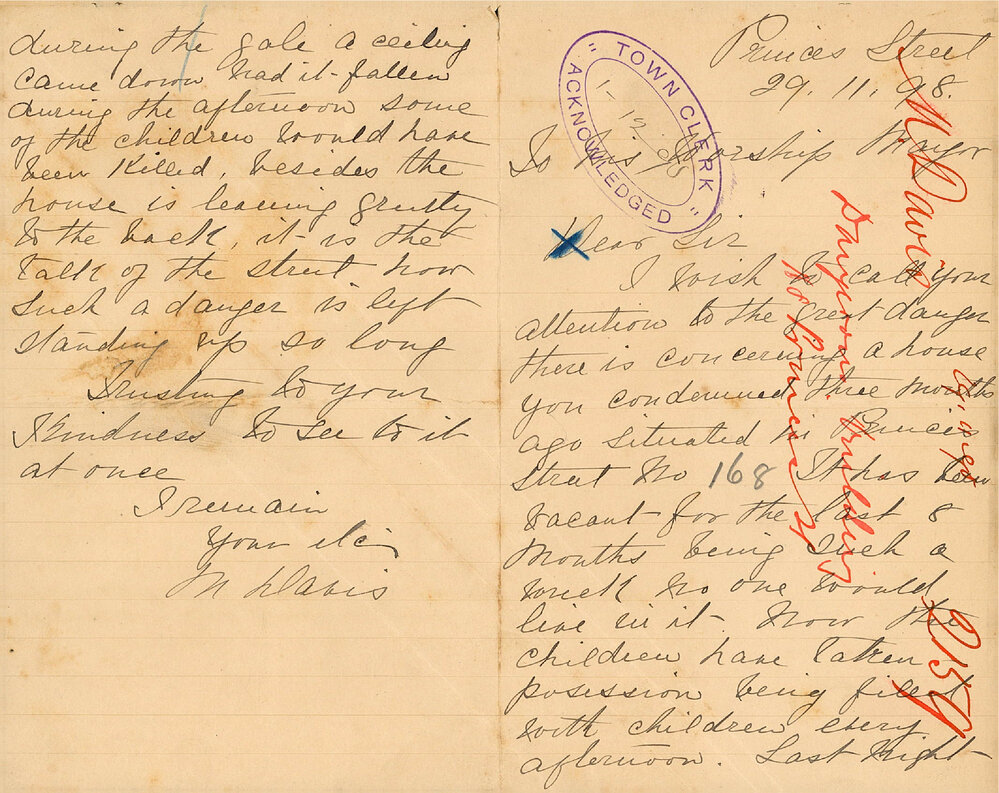 Princes Street
29.11.98.
To his Worship Mayor
Dear Sir
I wish to call your
attention to the great danger
there is concerning a house
you condemned three months
ago situated in Princes
Street No 168 It has been
vacant for the last 8
months being such a
wreck no one would
live in it. Now the
children have taken
posession being filled
with children every
afternoon. Last night
during the gale a ceiling
came down had it fallen
during the afternoon some
of the children would have
been killed, besides the
house is leaning greatly
to the back, it is the
talk of the street how
such a danger is left
standing up so long
Trusting to your
kindness to see to it
at once
I remain
Your etc
M Davis
" TOWN CLERK "
ACKNOWLEDGED
1-12.98
M. Davis
Dangerous building
168 Princes St
2159